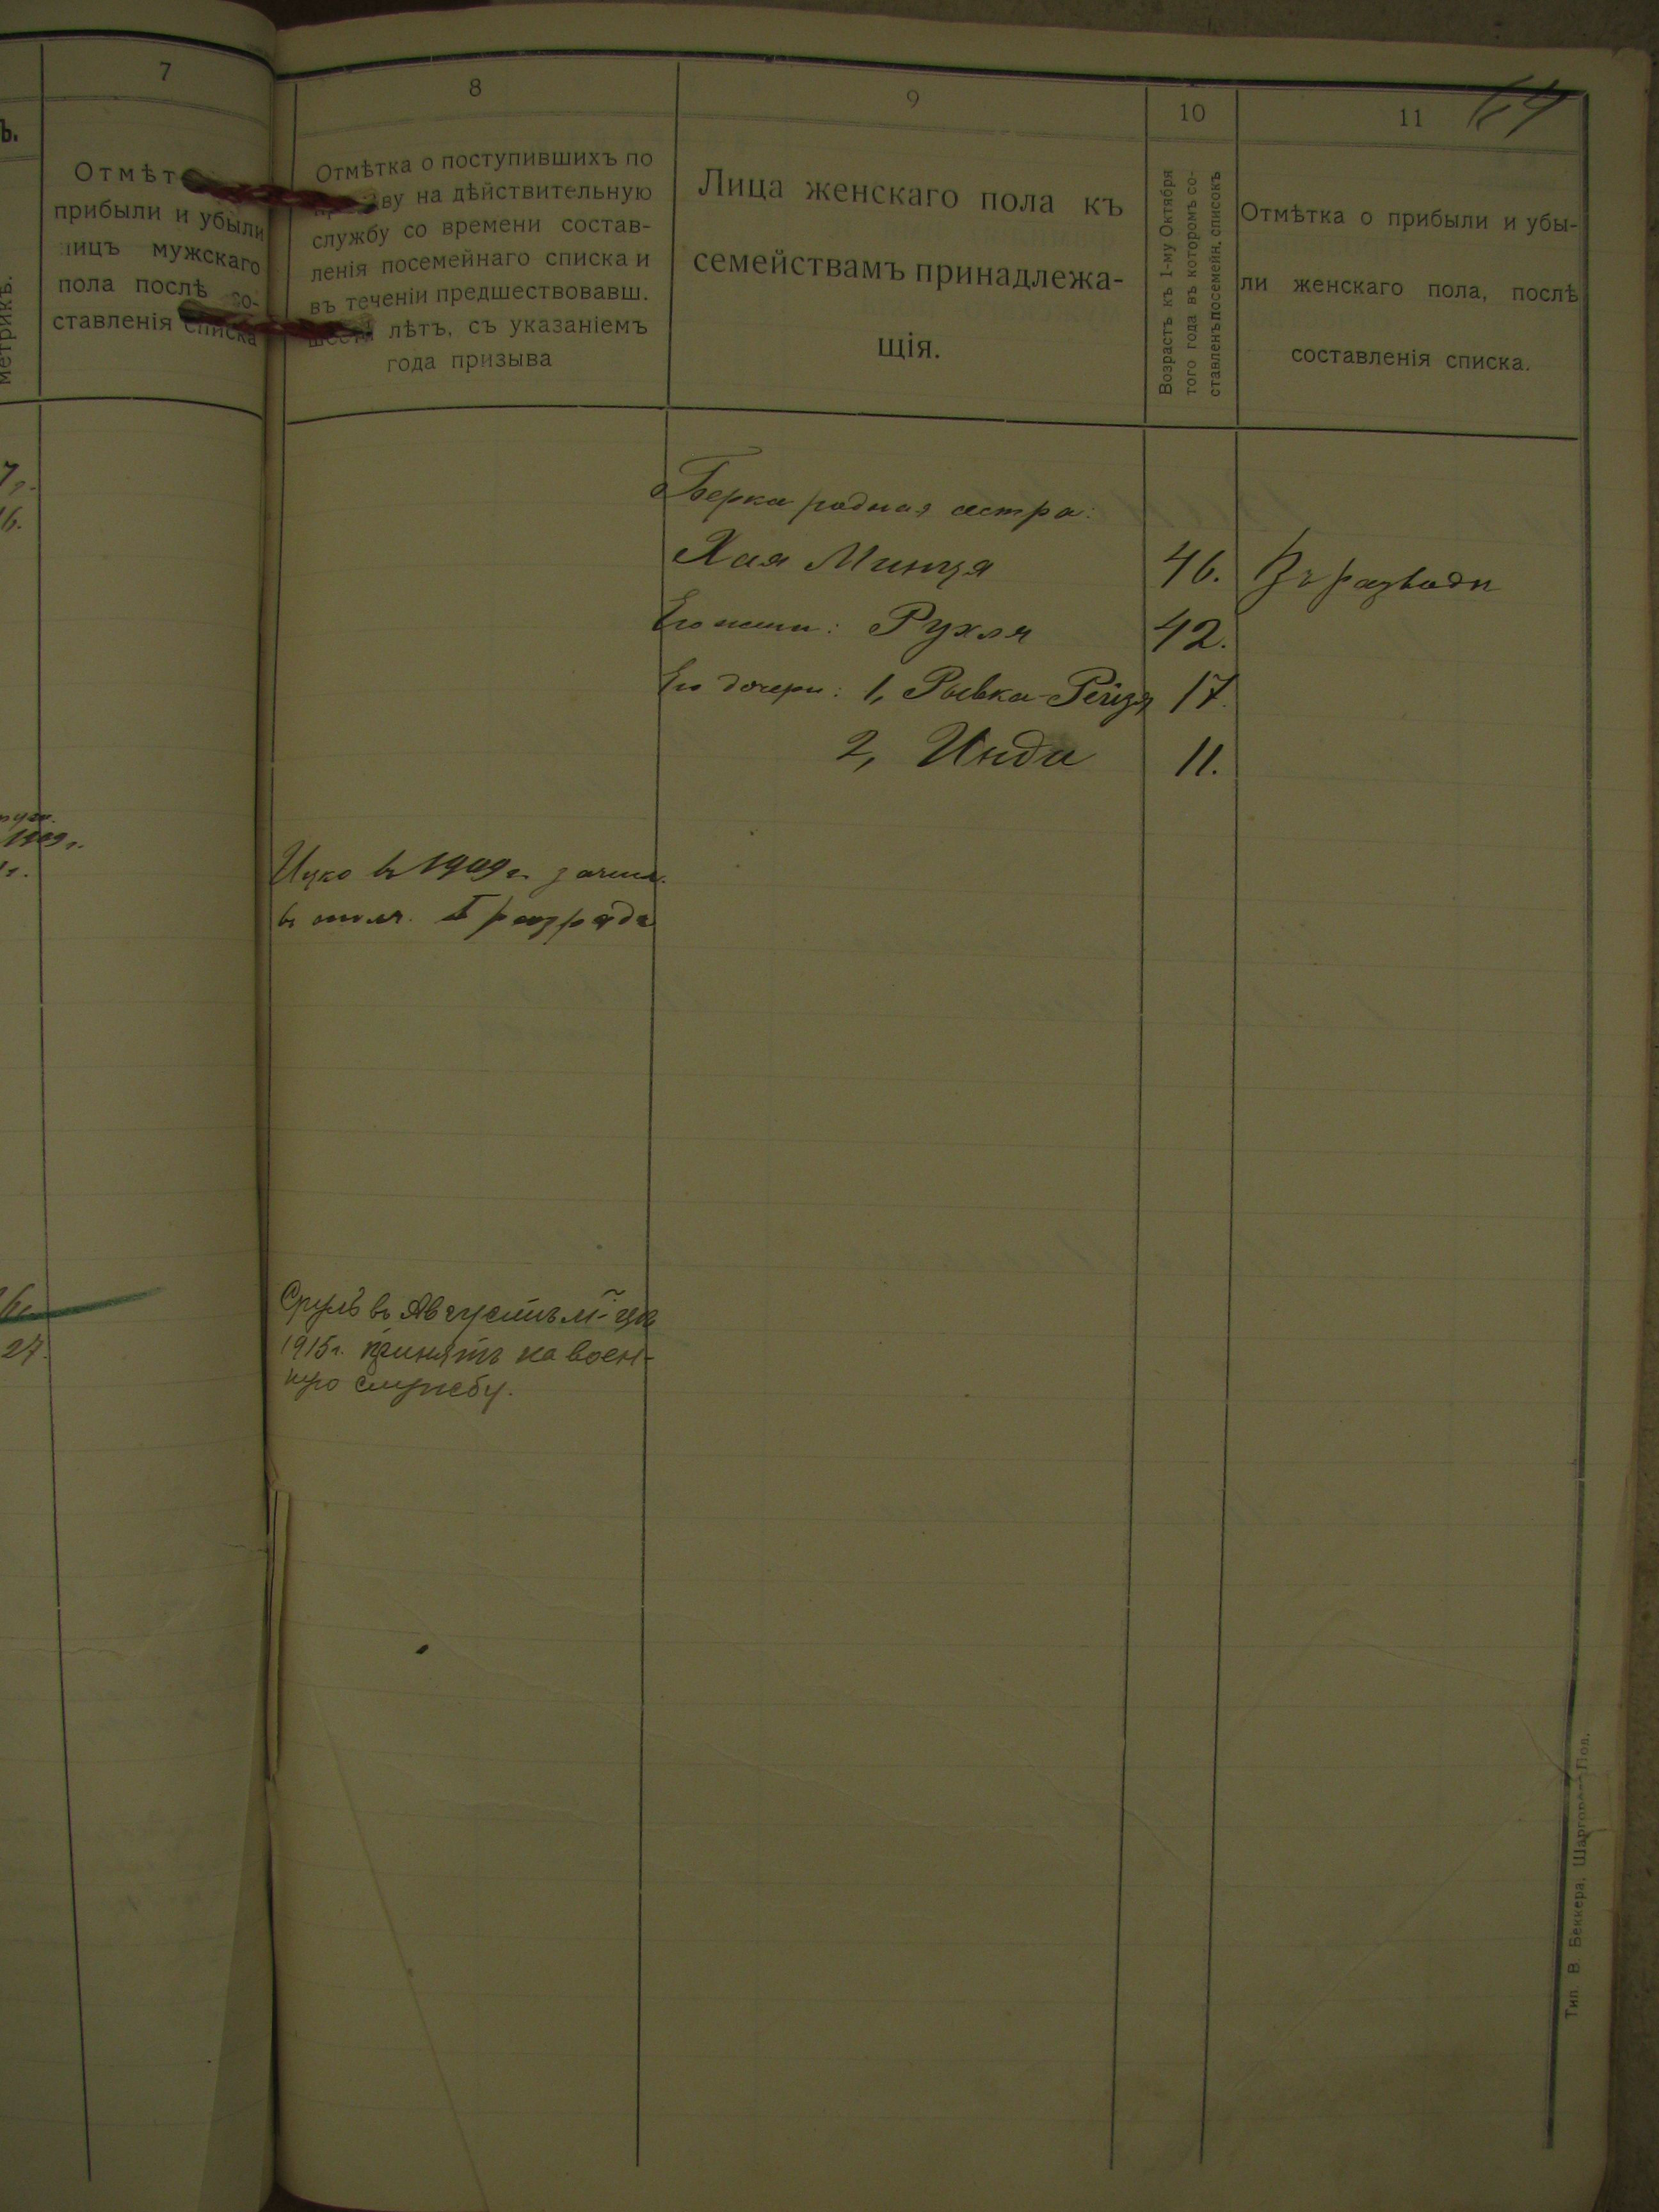 7
8
9
10
11
ъ.
метрикъ.
Отмѣт
прибыли и убыли
лицъ мужскаго
пола послѣ со-
ставленія списка
Отмѣтка о поступившихъ по
ву на дѣйствительную
службу со времени состав-
ленія посемейнаго списка и
въ теченіи предшествовавш.
шести лѣтъ, съ указаніемъ
года призыва
Лица женскаго пола къ
семействамъ принадлежа-
щія.
Возрастъ къ 1-му Октября
того года въ которомъ со-
ставленъ посемейн. списокъ
Отмѣтка о прибыли и убы-
ли женскаго пола, послѣ
составленія списка.
Берка родная сестра:
Хая Минця 46. Въ разводѣ
Его жена: Рухля 42.
Его дочери: 1, Рывка-Рейзя 17.
2, Инда 11.
1909 г.
Ицко въ 1909 г. зачисл.
въ ополч. I разряда
27.
Сруль въ Августѣ м-цѣ
1915 г. принятъ на воен-
ную службу.
Тип. В Беккера, Шаргородъ Под.